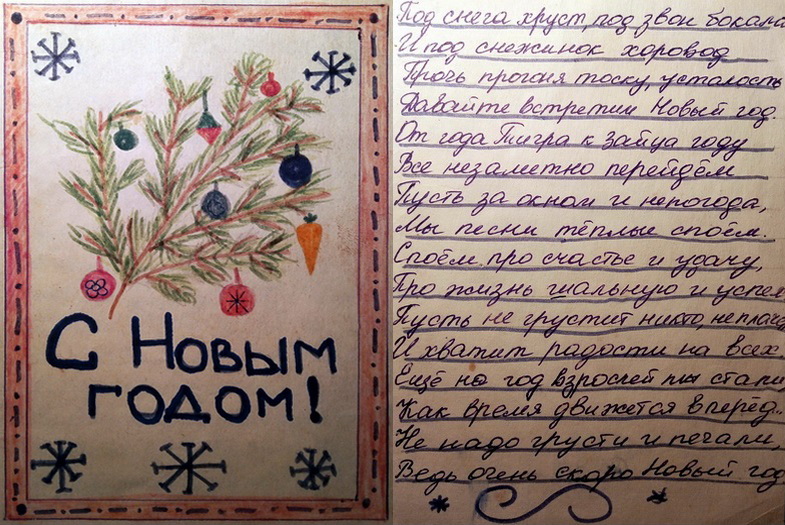 С Новым
годом!
Под снега хруст, под звон бокала
И под снежинок хоровод
Прочь прогоня тоску, усталость
Давайте встретим Новый год.
От года Тигра к зайца году
Все незаметно перейдём
Пусть за окном и непогода,
Мы песни тёплые споём.
Споём про счастье и удачу,
Про жизнь шальную и успех
Пусть не грустит никто, не плачет
И хватит радости на всех.
Ещё на год взрослей мы стали,
Как время движется вперёд..
Не надо грусти и печали,
Ведь очень скоро Новый год